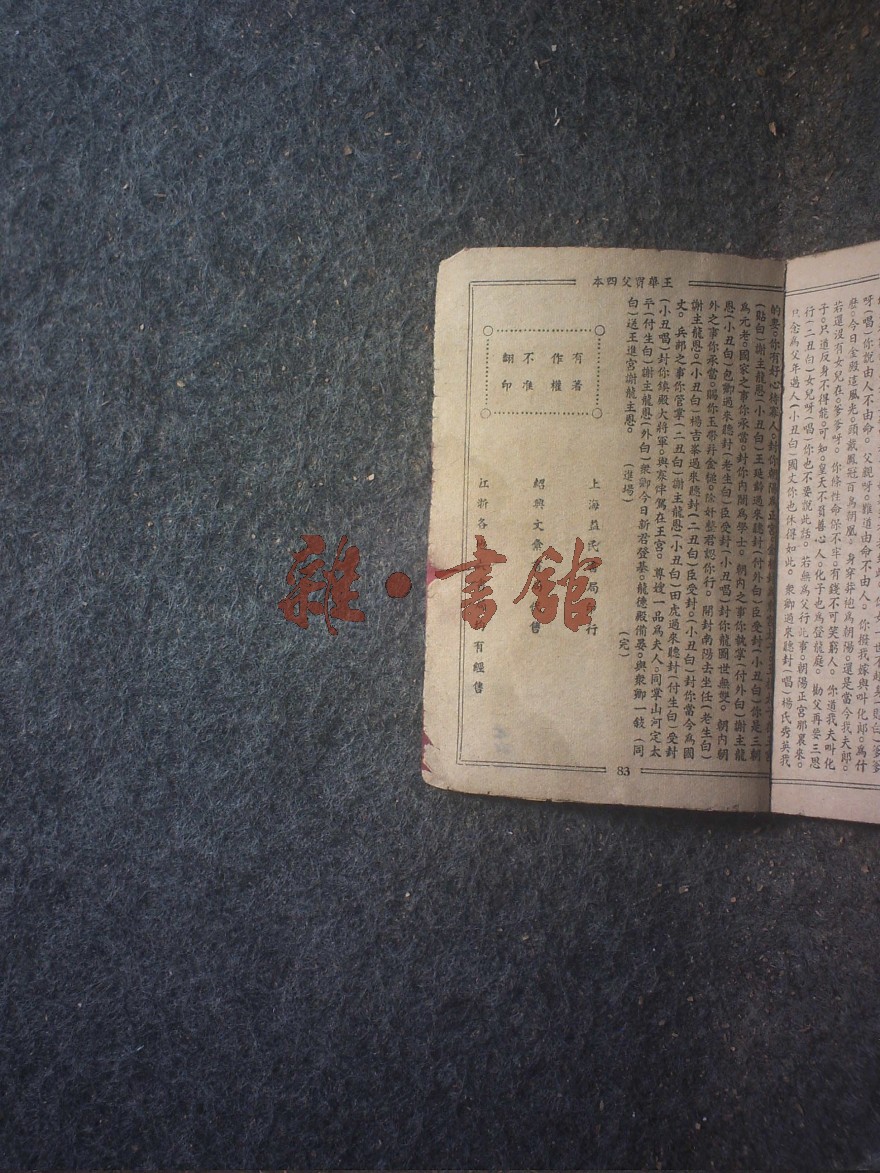 呀(唱)你說由人不由命。父親呀。難道由命不由人。你撥我嫁與叫化郎。爲什
麽。今日金殿這風光。頭戴鳳冠百鳥朝凰。身穿莽袍爲朝陽。還是當今我夫郎。
若還沒有女兒在。爹爹呀。你條性命保不牢。有錢不可笑窮人。你道我夫叫化
子。只道反身不得能。可知。皇天不負善心人。化子也爲登龍庭。勸父再要三思
行(二丑白)女兒呀(唱)你也不要說此話。若無爲父行此事。朝陽正宮那裏來。
只念爲父年邁人(小丑白)國丈你也休得如此。衆卿過來聽封(唱)楊氏秀英我
王華買父四本
(貼白)謝主龍恩(小丑白)王延齡過來聽封(付外白)臣受封(小丑白)你是三朝
爲元老。國家之事你承當。封你內閣爲學士。朝內之事你執掌(付外白)謝主龍
恩(小丑白)包卿過來聽封(老生白)臣受封(小丑唱)封你龍圖世無雙。朝內朝
外之事你承當。賜你玉帶并金鐧。除奸整君認你行。開封南陽去坐任(老生白)
謝主龍恩。(小丑白)楊吉峯過來聽封(二丑白)臣受封。(小丑白)封你當今爲國
丈。兵部之事你管掌(二丑白)謝主龍恩(小丑白)田虎過來聽封(付生白)受封
(小丑唱)封你鎮殿大將軍。與家伴駕在王宮。尊嫂一品爲夫人。同掌山河定太
平(付生白)謝主龍恩(外白)衆卿今日新君登基。龍德殿備晏。與衆卿一敍(同
白)送王進宮謝龍主恩。(進場)(完)
有著
作權
不准
翻印
上海益民 局 行
紹興文
江浙各 有經售
83
雜·書館